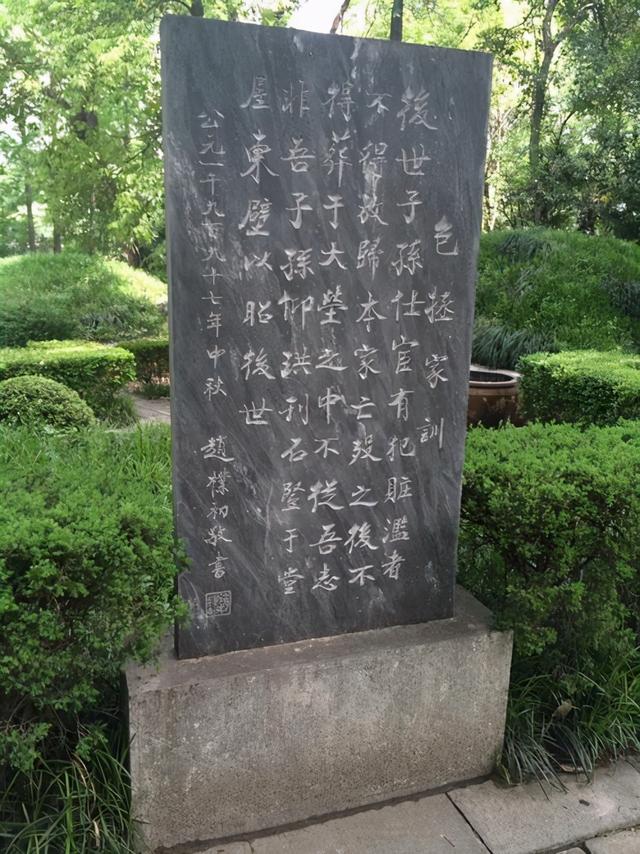 包拯家訓
後世子孫仕宦有犯賍濫者
不得放歸本家亡歿之後不
得葬于大塋之中不從吾志
非吾子孫仰珙刊石竪于堂
屋東壁以昭後世
公元一千九百九十七年中秋 趙樸初敬書